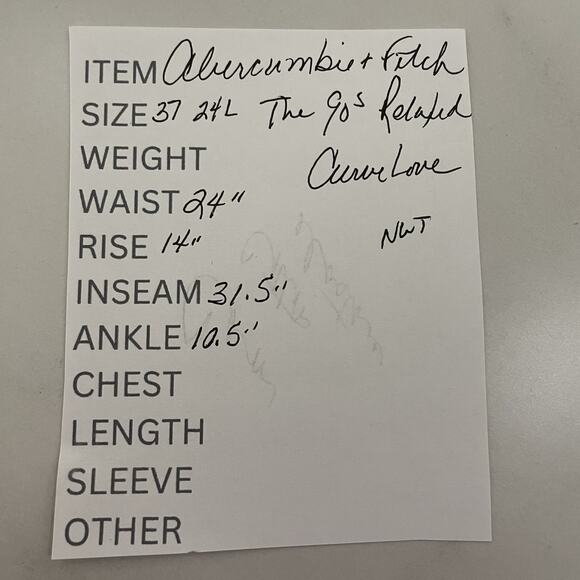 ITEM Abercrumbie + Fitch
SIZE 37 24L The 90s Relaxed
WEIGHT Curve Love
WAIST 24"
RISE 14" NWT
INSEAM 31.5"
ANKLE 10.5"
CHEST
LENGTH
SLEEVE
OTHER